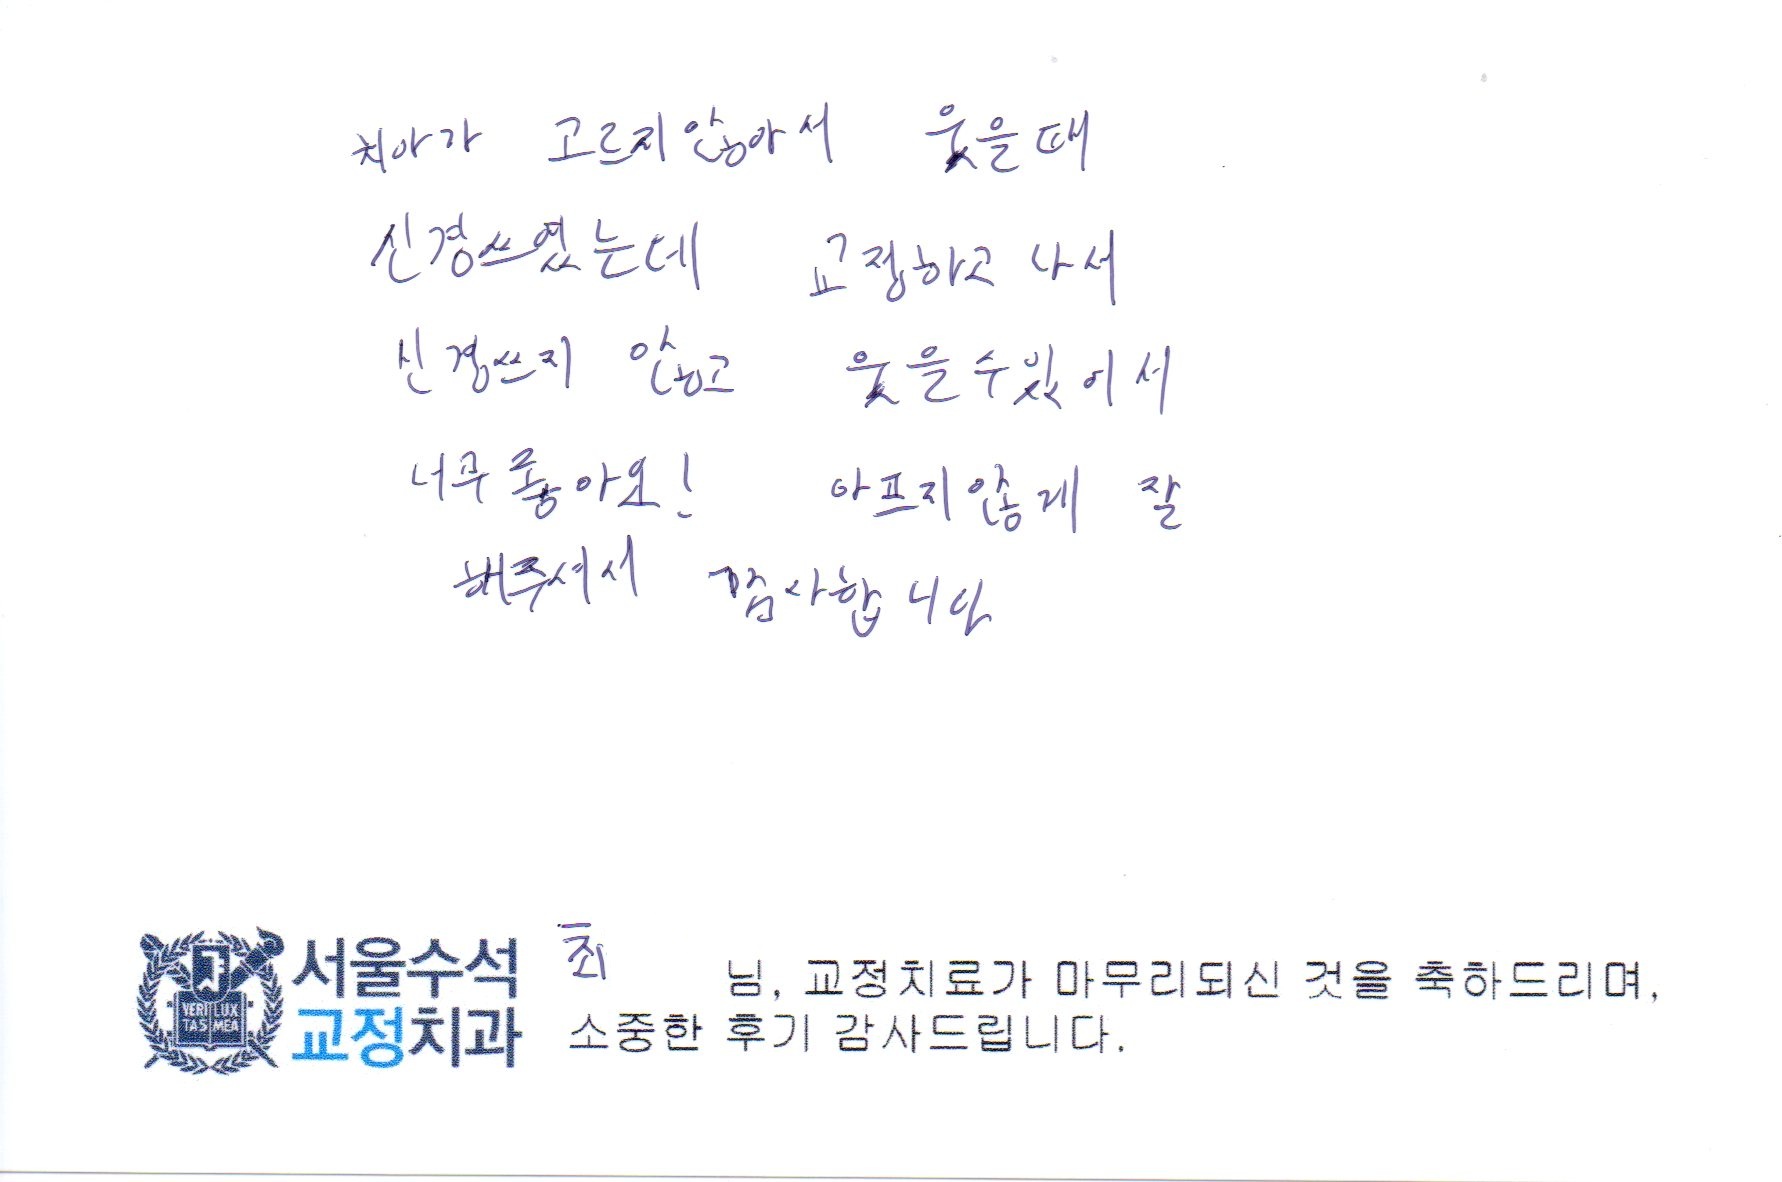 치아가 고르지않아서 웃을때
신경쓰였는데 교정하고 나서
신경쓰지 않고 웃을수있어서
너무 좋아요! 아프지않게 잘
해주셔서 감사합니다
VERI LUX
TAS MEA
서울수석
교정치과
최 님, 교정치료가 마무리되신 것을 축하드리며,
소중한 후기 감사드립니다.